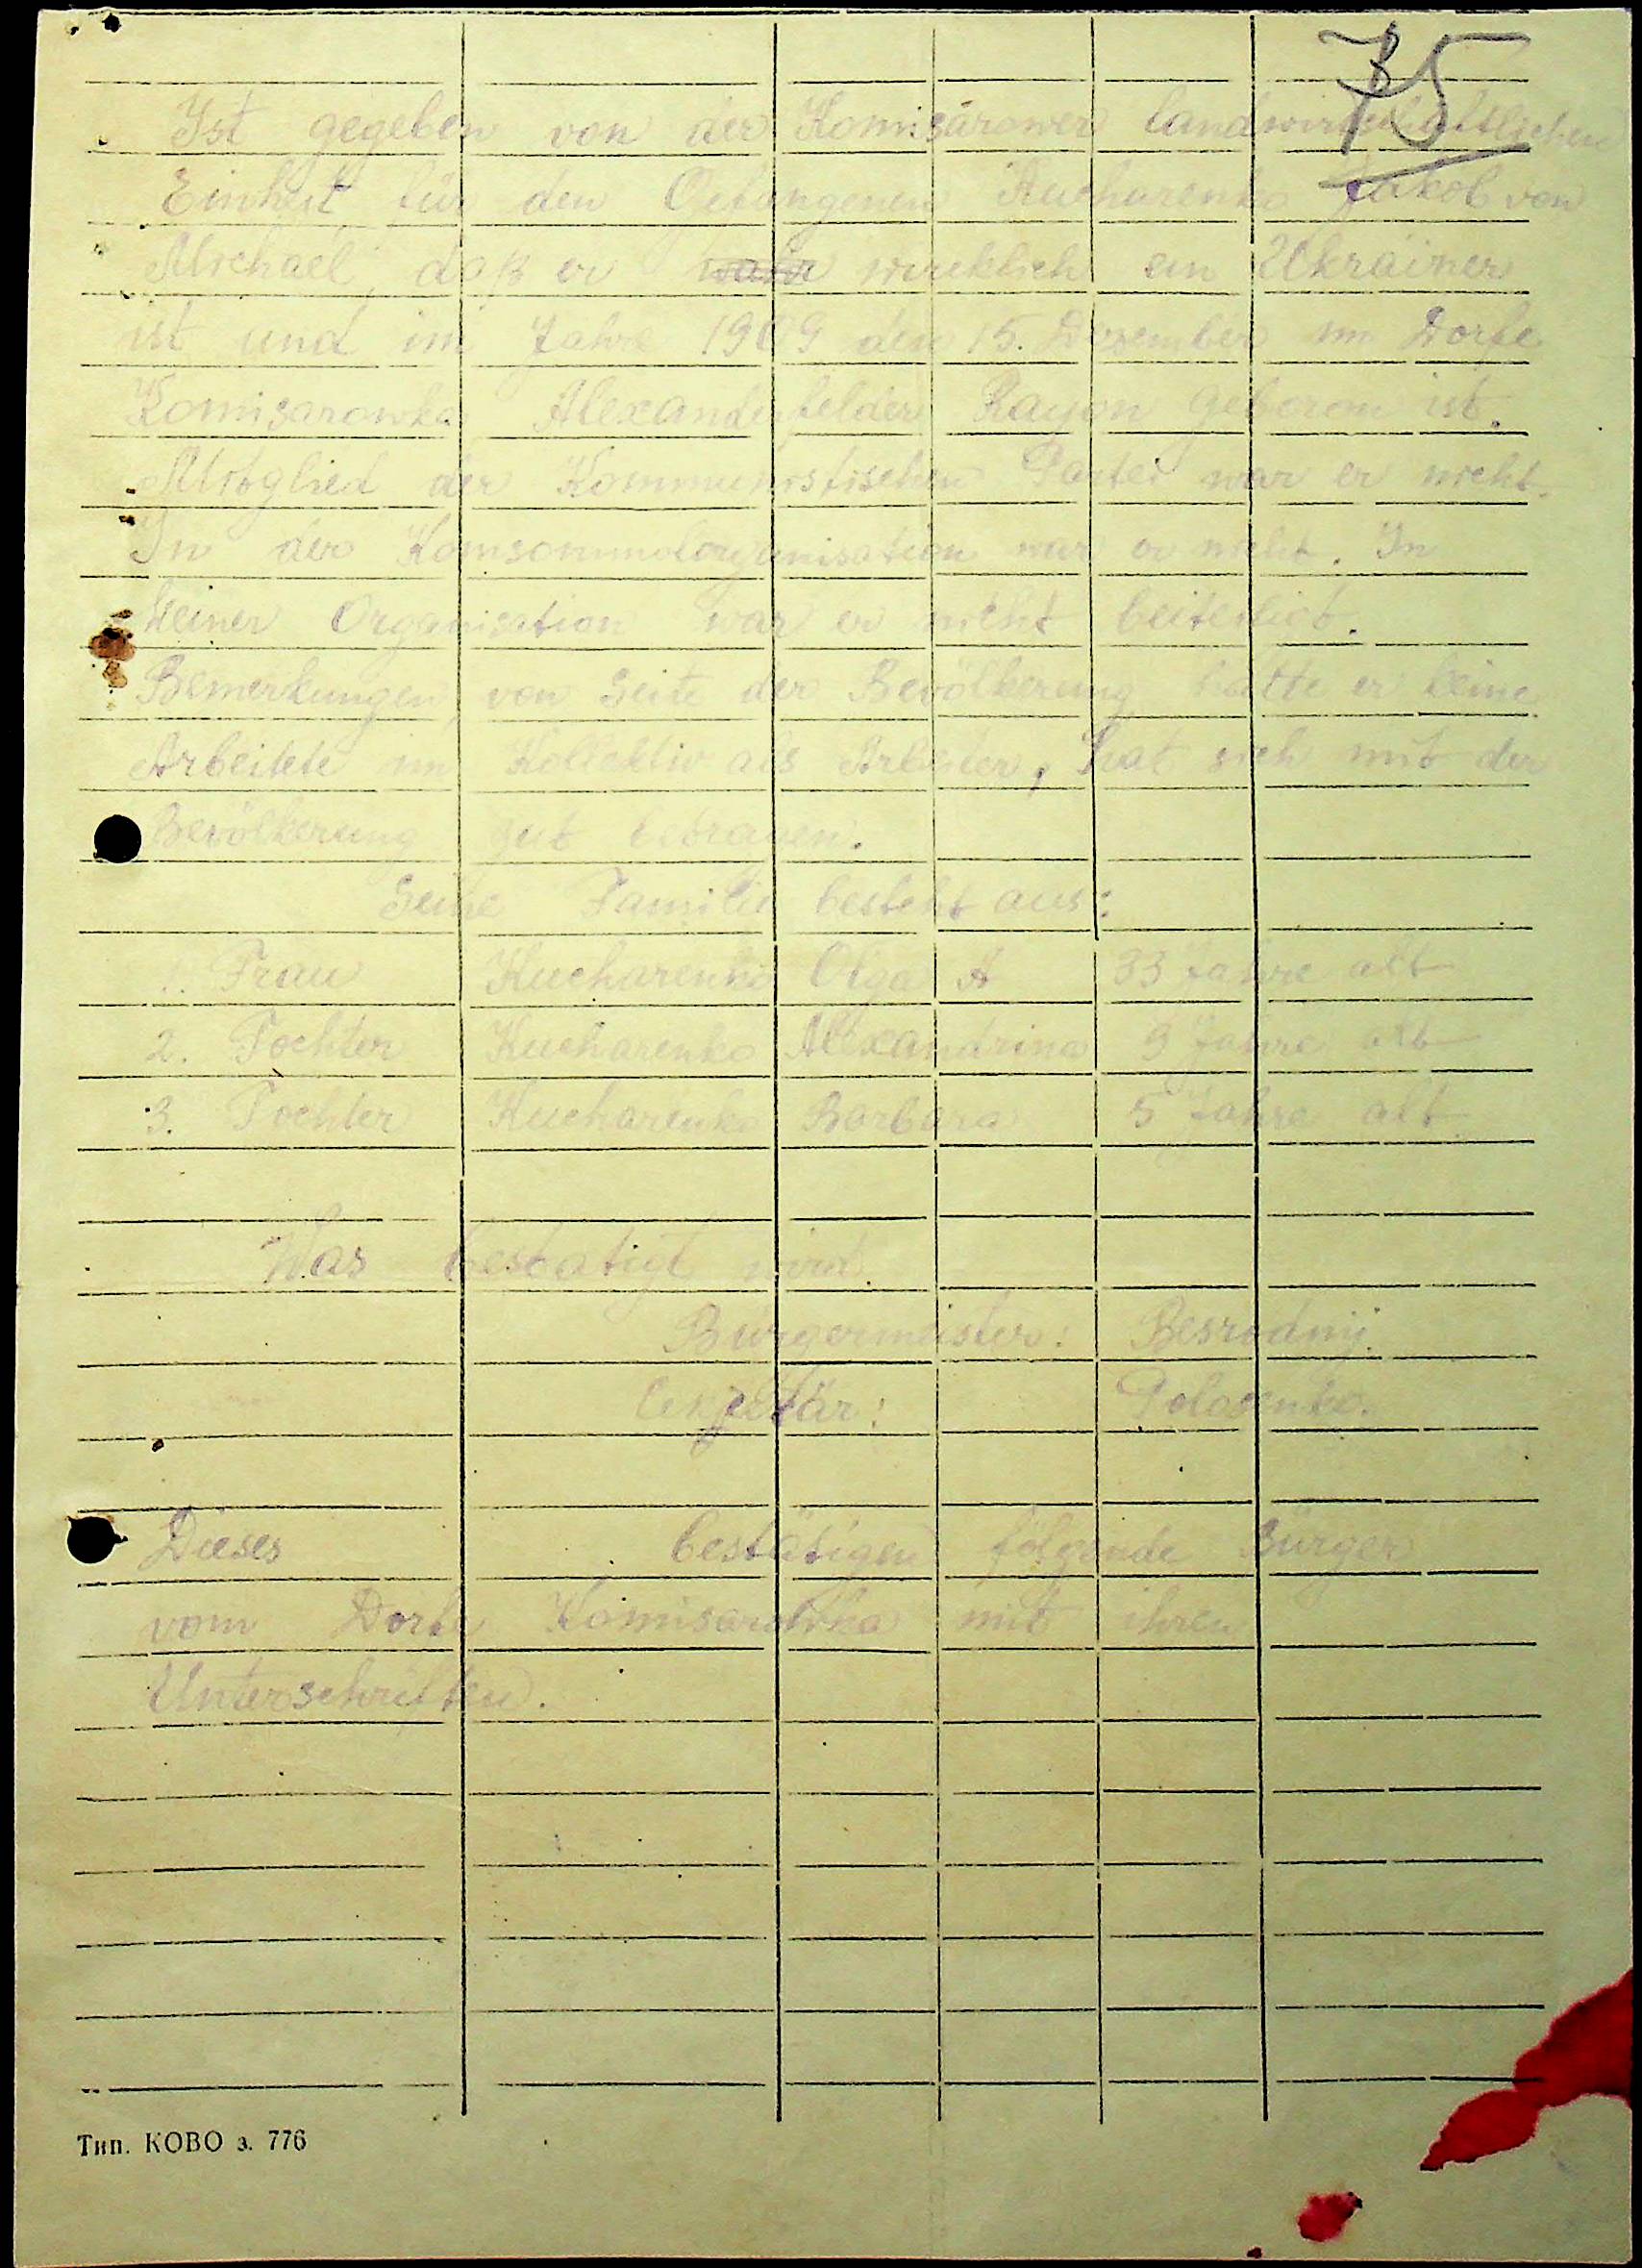 75
Ist gegeben von der Komisarower landwirtschaftlichen
Einheit für den Gefangenen Kucharenko Jakob von
Michael, daß er wircklich ein Ukrainer
ist und im Jahre 1909 den 15. Dezember im Dorfe
Komisarowka Alexanderfelder Rayon geboren ist.
Mitglied der Kommunistischen Partei war er nicht.
In der Komsommolorganisation war er nicht. In
keiner Organisation war er nicht
Bemerkungen von Seite der Bevölkerung hatte er keine
Arbeitete im Kollektiv als Arbeiter, hat sich mit der
Bevölkerung gut betragen.
Seine Familie besteht aus:
1. Frau Kucharenko Olga A 33 Jahre alt
2. Tochter Kucharenko Alexandrina 9 Jahre alt
3. Tochter Kucharenko Barbara 5 Jahre alt
Was bestatigt wird.
Bürgermeister: Besrodnij.
Dieses bestätigen folgende Bürger
vom Dorfe Komisarowka mit ihren
Unterschriften.
Тип. КОВО з. 776